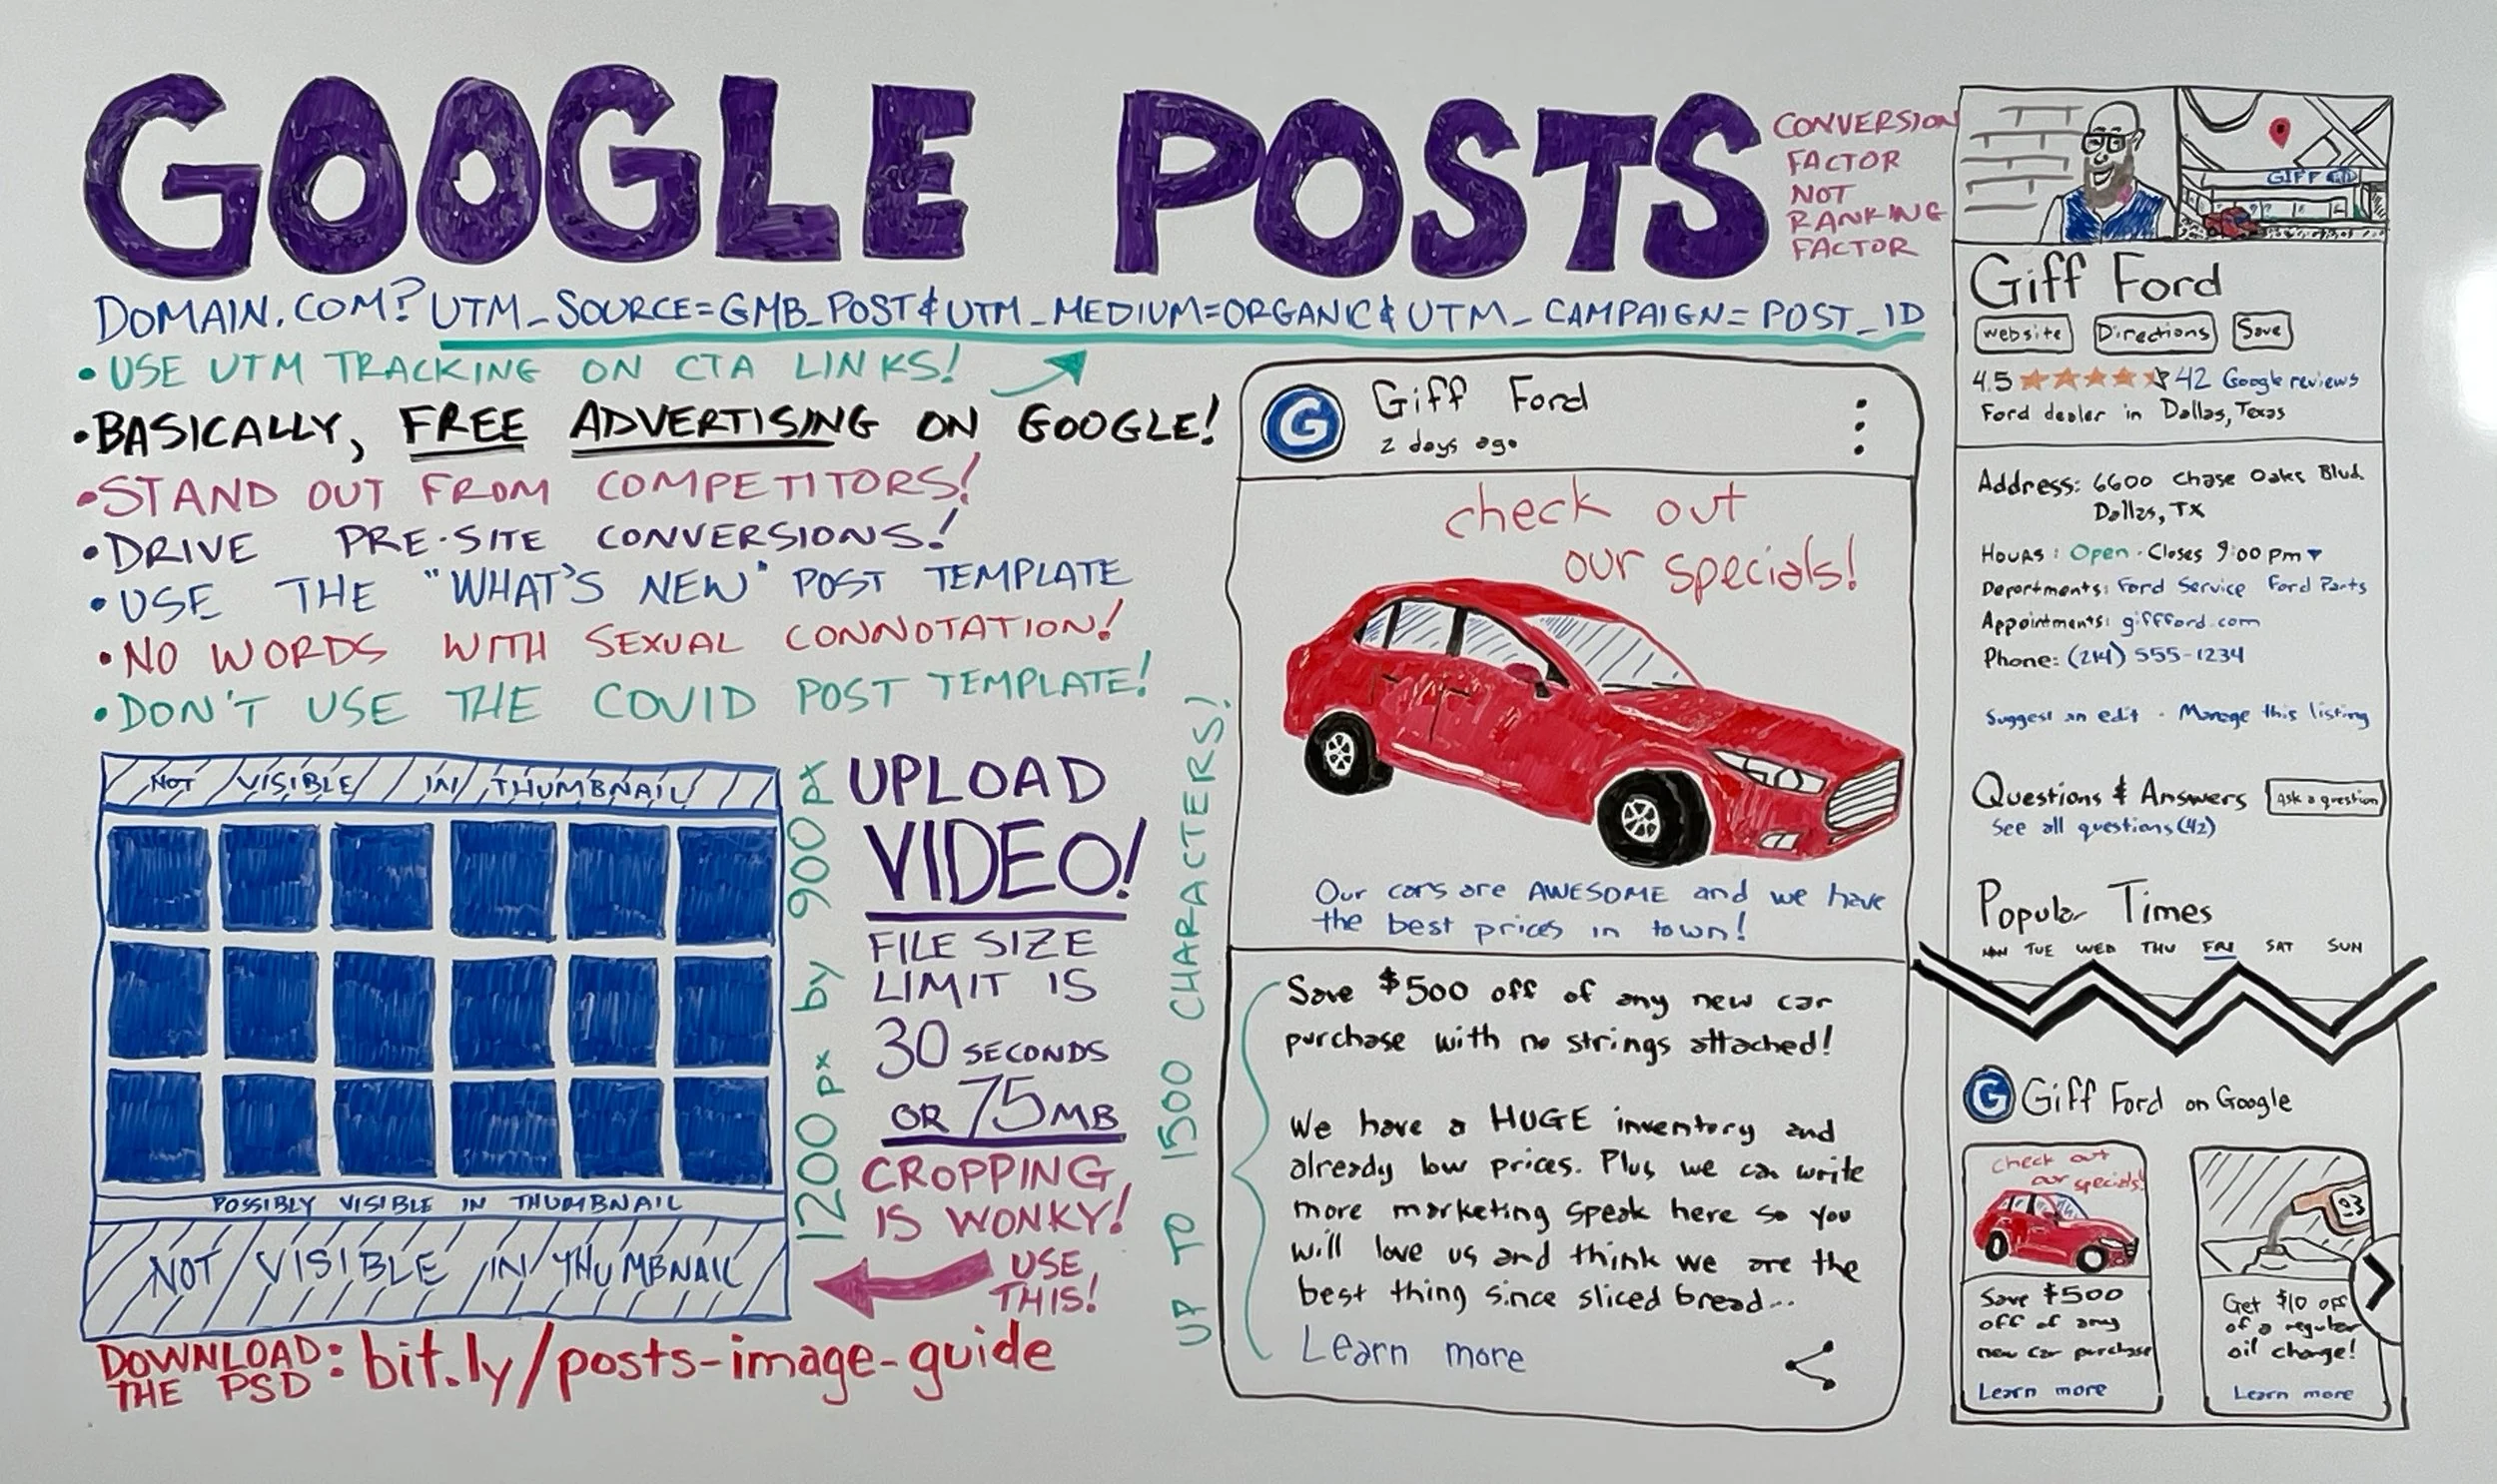 GOOGLE POSTS
CONVERSION
FACTOR
NOT
RANKING
FACTOR
DOMAIN.COM?UTM_SOURCE=GMB_POST&UTM_MEDIUM=ORGANIC&UTM_CAMPAIGN=POST_ID
•USE UTM TRACKING ON CTA LINKS!
•BASICALLY, FREE ADVERTISING ON GOOGLE!
•STAND OUT FROM COMPETITORS!
•DRIVE PRE-SITE CONVERSIONS!
•USE THE "WHAT'S NEW" POST TEMPLATE
•NO WORDS WITH SEXUAL CONNOTATION!
•DON'T USE THE COVID POST TEMPLATE!
NOT VISIBLE IN THUMBNAIL
POSSIBLY VISIBLE IN THUMBNAIL
NOT VISIBLE IN THUMBNAIL
1200px by 900px
UPLOAD
VIDEO!
FILE SIZE
LIMIT IS
30 SECONDS
OR 75MB
CROPPING
IS WONKY!
USE
THIS!
DOWNLOAD
THE PSD: bit.ly/posts-image-guide
UP TO 1500 CHARACTERS!
G
Giff Ford
2 days ago
check out
our specials!
Our cars are AWESOME and we have
the best prices in town!
Save $500 off of any new car
purchase with no strings attached!
We have a HUGE inventory and
already low prices. Plus we can write
more marketing speak here so you
will love us and think we are the
best thing since sliced bread...
Learn more
GIFF
Giff Ford
Website Directions Save
4.5 42 Google reviews
Ford dealer in Dallas, Texas
Address: 6600 Chase Oaks Blvd.
Dallas, TX
Hours: Open · Closes 9:00 pm
Departments: Ford Service Ford Parts
Appointments: giffford.com
Phone: (214) 555-1234
Suggest an edit · Manage this listing
Questions & Answers Ask a question
See all questions (42)
Popular Times
MON TUE WED THU FRI SAT SUN
G Giff Ford on Google
check out
our specials!
Save $500
off of any
new car purchase
Learn more
Get $10 off
of a regular
oil change!
Learn more